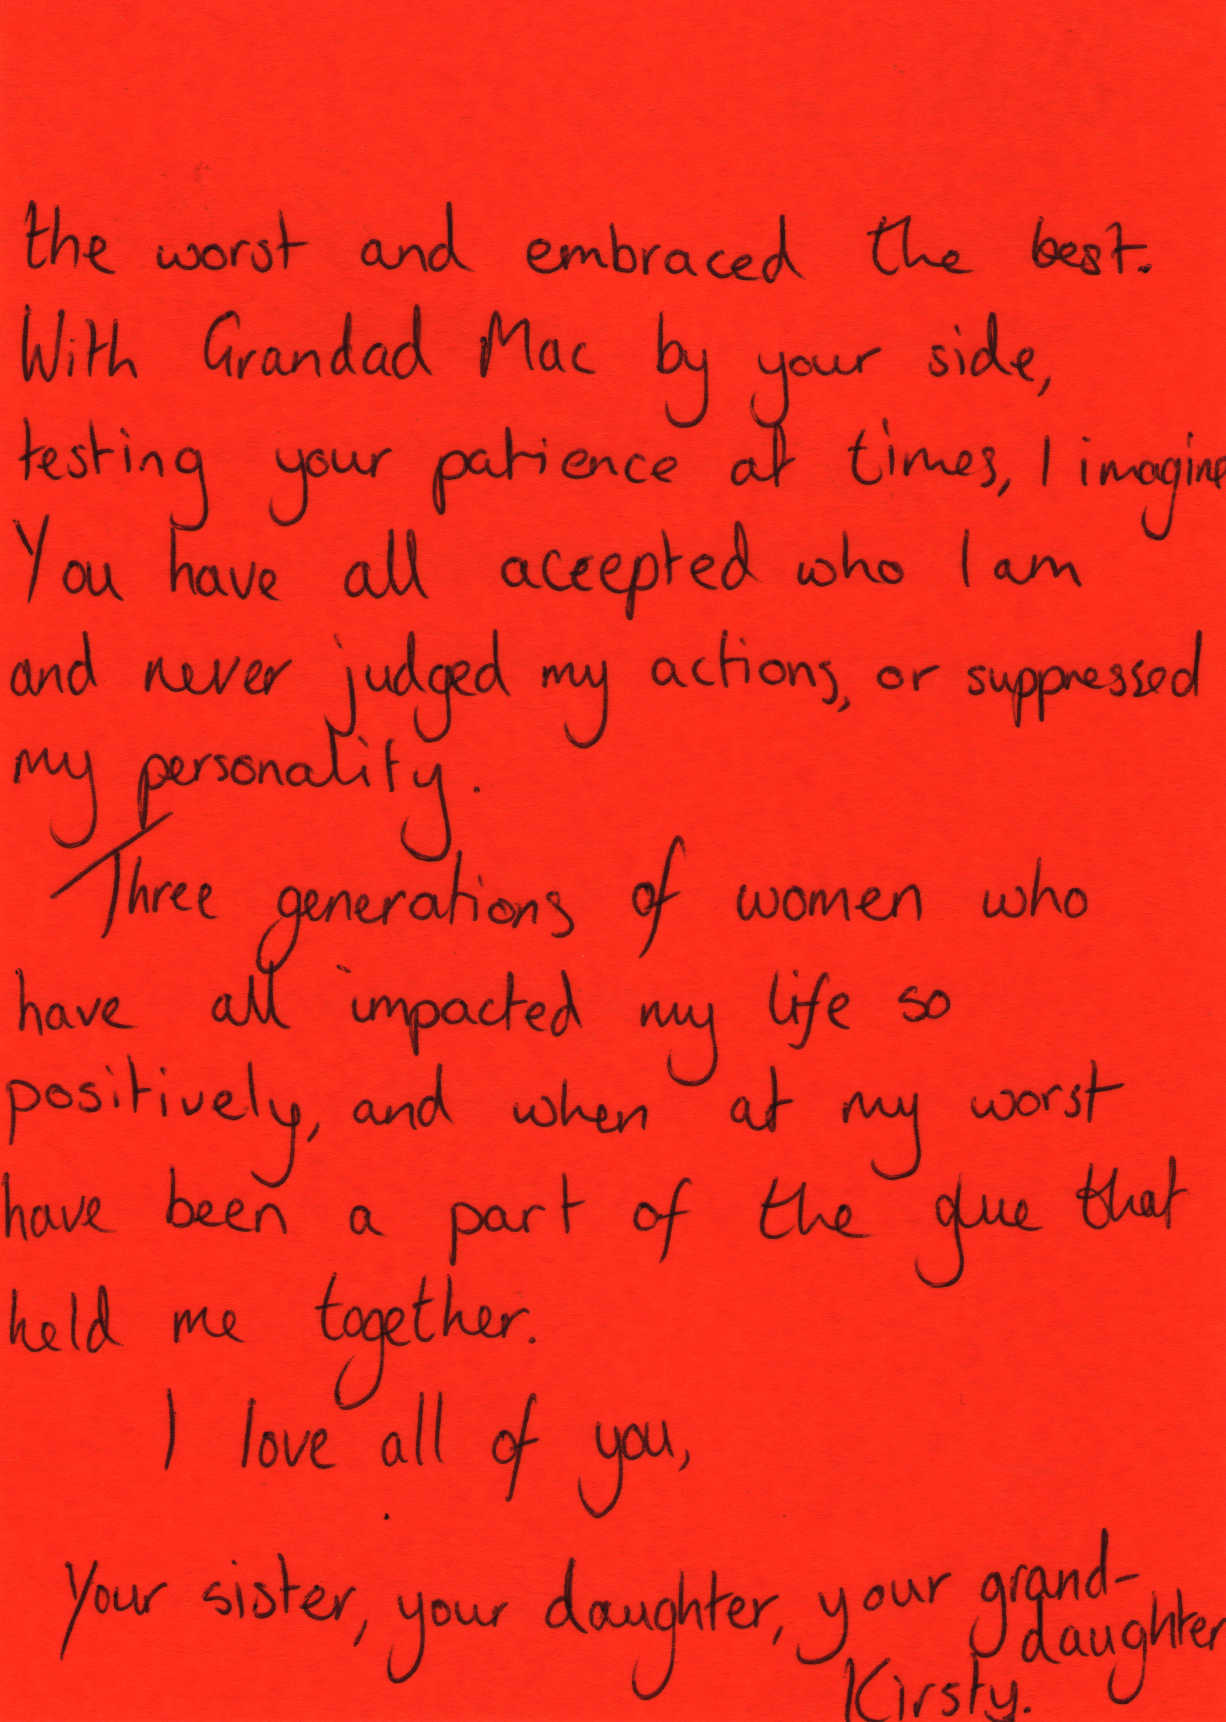 the worst and embraced the best.
With Grandad Mac by your side,
testing your patience at times, I imagine
You have all accepted who I am
and never judged my actions, or suppressed
my personality.
Three generations of women who
have all impacted my life so
positively, and when at my worst
have been a part of the glue that
held me together.
I love all of you,
Your sister, your daughter, your grand-
daughter
Kirsty.